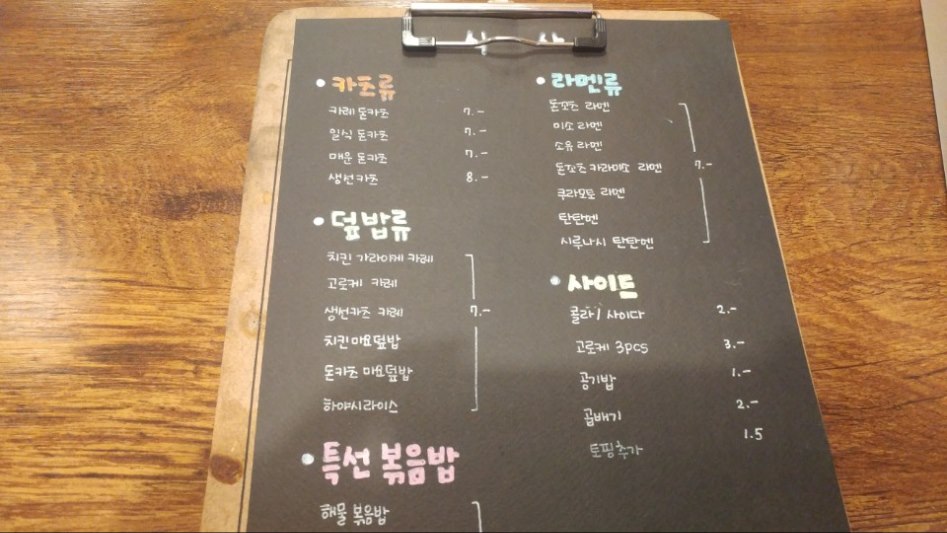 • 카츠류
카레 돈카츠 7.-
일식 돈카츠 7.-
매운 돈카츠 7.-
생선카츠 8.-
• 덮밥류
치킨 가라아게 카레
고로케 카레
생선카츠 카레 7.-
치킨마요덮밥
돈카츠 마요덮밥
하야시라이스
• 특선 볶음밥
해물 볶음밥
• 라멘류
돈꼬츠 라멘
미소 라멘
소유 라멘
돈꼬츠 카라미소 라멘 7.-
쿠라모토 라멘
탄탄멘
시루나시 탄탄멘
• 사이드
콜라 / 사이다 2.-
고로케 3pcs 3.-
공기밥 1.-
곱배기 2.-
토핑추가 1.5